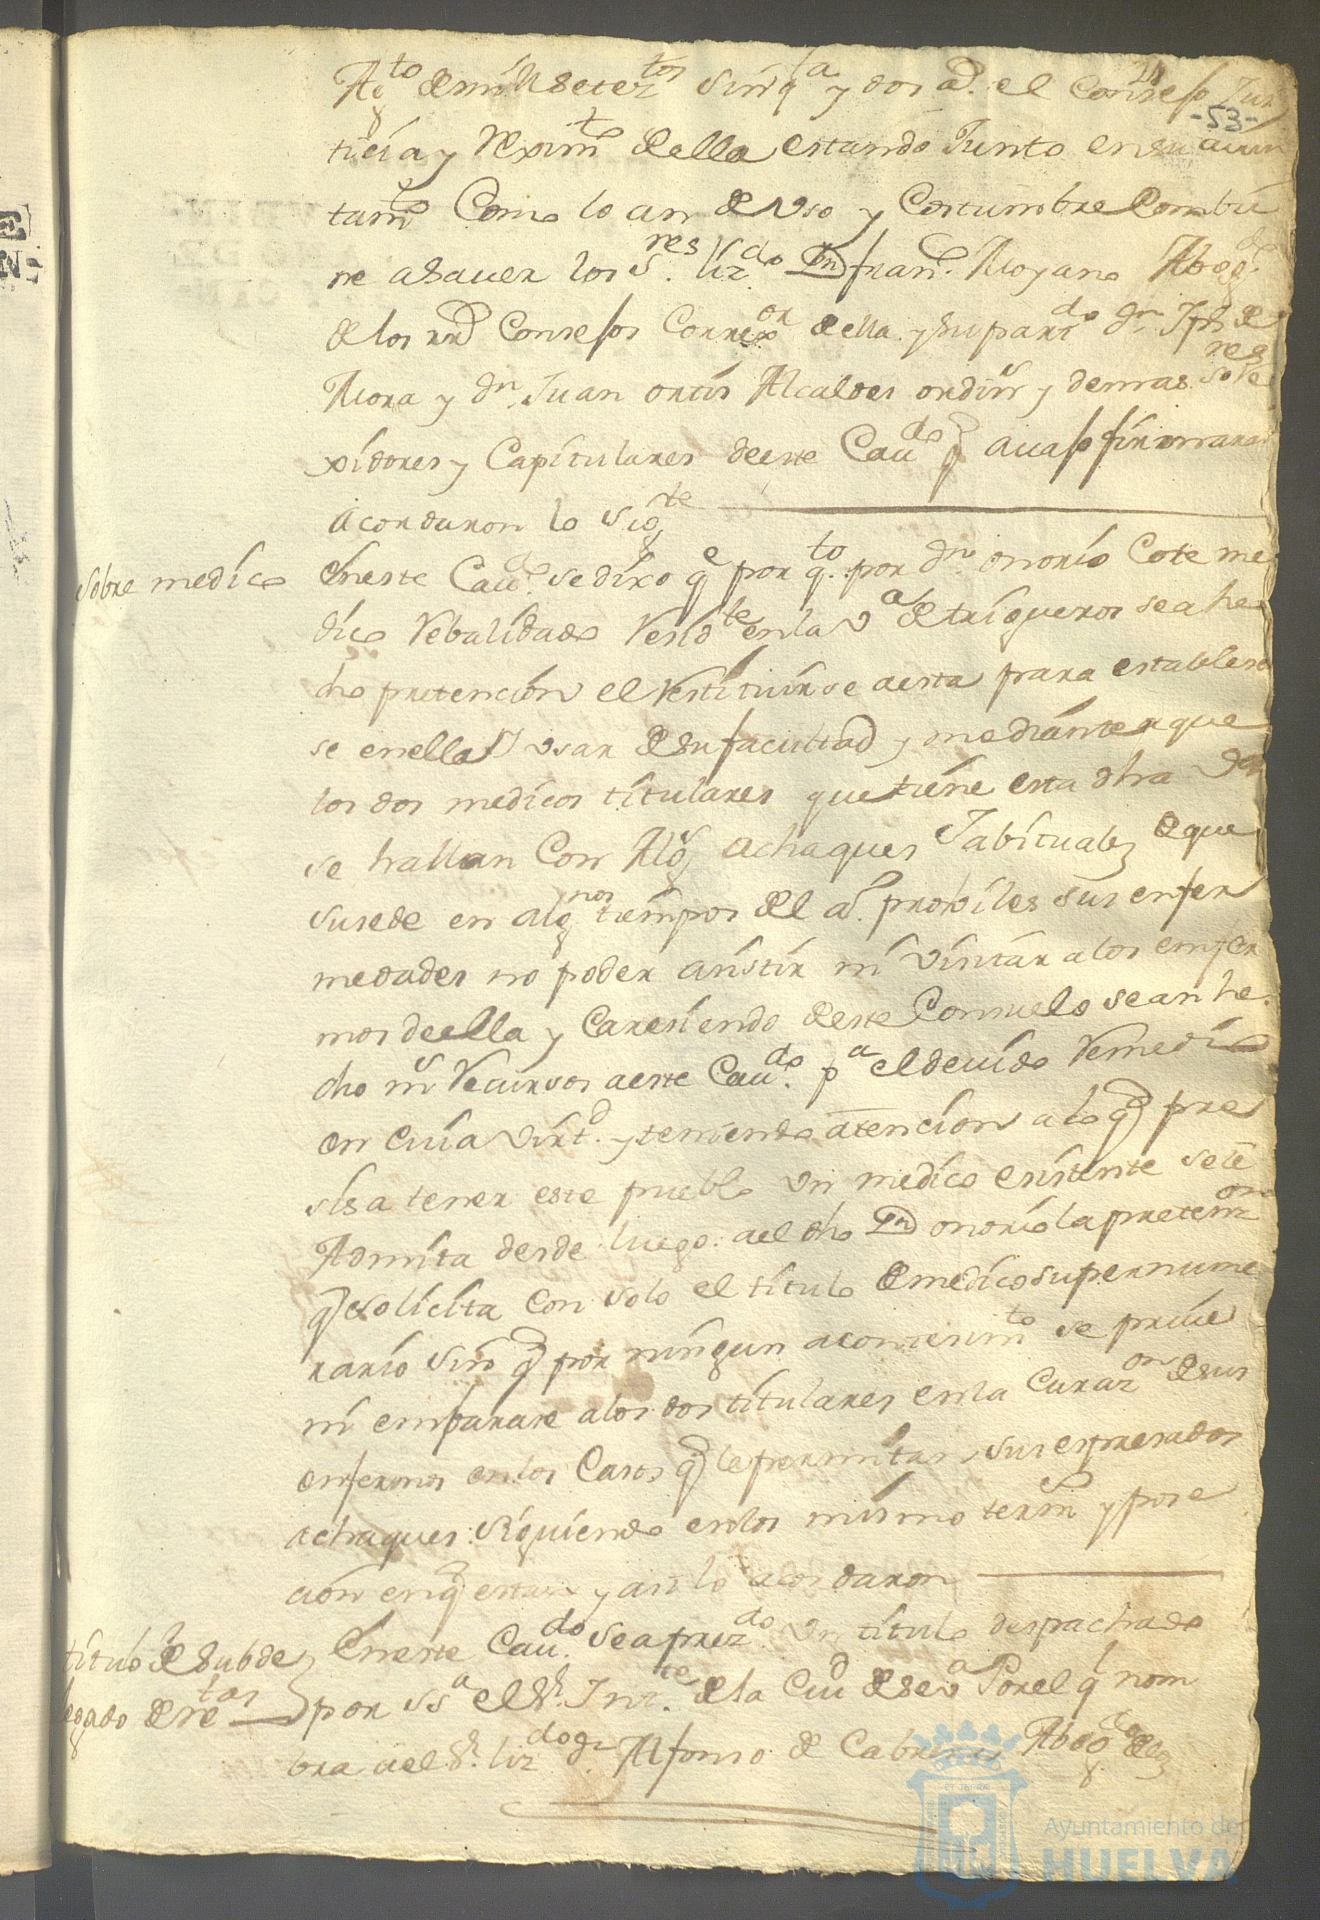 Agto de mill setezos sinqta y dos as. el Consejo Jus
-53-
ticia y Reximto de ella estando Junto en su aiun
tamto Como lo an de Uso y Costumbre Combie
ne a Saver los Sres. lizdo Dn fran.co Moyano Abogdo
de los rrs Consejos Correxor de ella y su partdo dn Jph de
Mora y dn Juan ortis Alcaldes ordins y demas Sres Re
xidores y Capitulares de este Cavdo q avajo firmaran
Acordaron lo Sigte
Sobre medico
En este Cavdo. se dixo qe por qto. por dn onorio Cote me
dico Rebalidado Residte en la va de trigueros se a he
cho pretencion el Restituirse a esta para estableser
se en ella y Usar de su facultad y mediante a que
los dos medicos titulares que tiene esta dha Va
se hallan Con Algs achaques Jabituales de que
susede en algnos tiempos del as. prohiviles sus enfer
medades no poder asistir ni visitar a los enfer
mos de ella y Caresiendo de este Consuelo se an he
cho ms Recursos a este Cavdo. pa el devido Remedio
en Cuia virtd. y teniendo atencion a lo q pre
sisa tener este pueblo Un medico existente se le
Admita desde luego. a el dho Dn onorio la pretenzon
q solicita con solo el titulo de medico supernume
rario Sin q por ningun acontesimto se prive
ni embarase a los dos titulares en la Curazon de sus
enfermos en los Casos q le permitan sus expresados
achaques. Siguiendo en los mismo termn y pose
cion en q estan y asi lo acordaron
titulo de Subde
legado de retas
En este Cavdo Se a prezdo. Un titulo despachado
por Ssa el Sr. Intte de la Ciud de Seva Por el q nom
bra a el Sr. lizdo dn Alfonso de Cabreras Abogdo de los
Ayuntamiento de
HUELVA